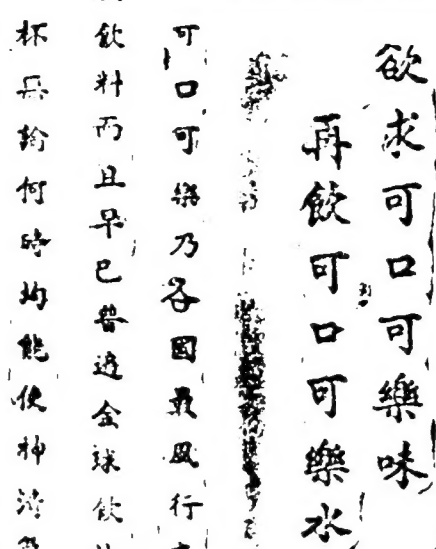 欲求可口可樂味
再飲可口可樂水
可口可樂乃各國最風行
飲料而且早已普遍全球飲
杯無論何時均能使神清